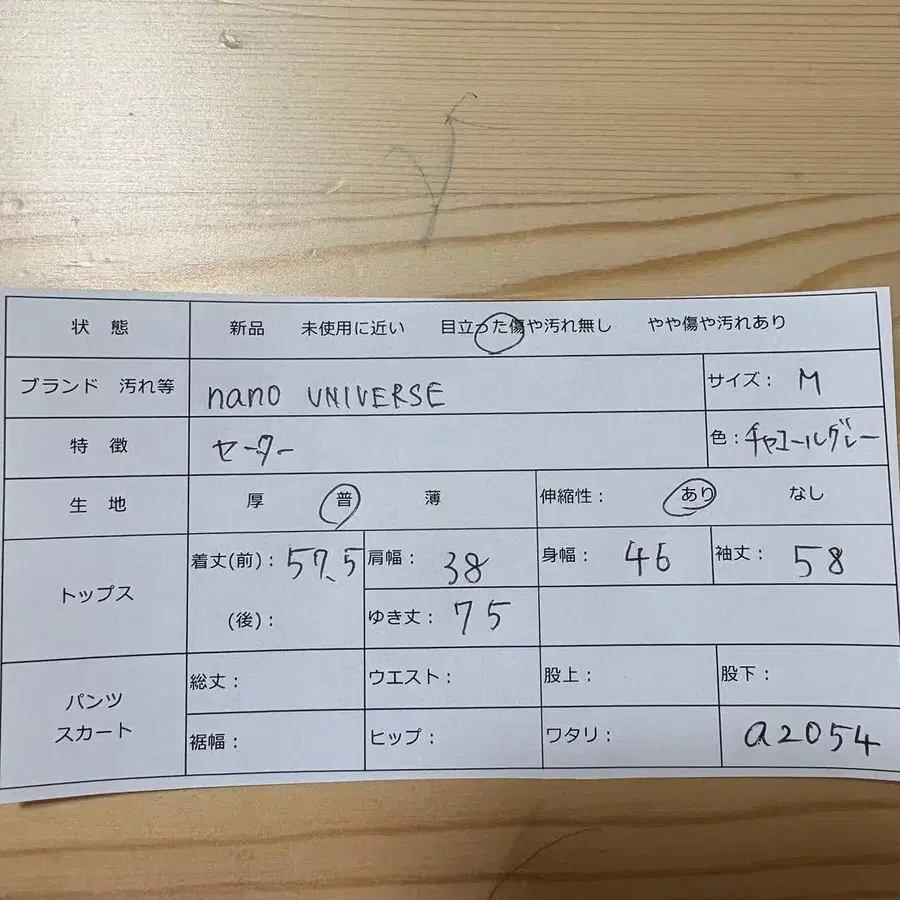 状 態 新品 未使用に近い 目立った傷や汚れ無し やや傷や汚れあり
ブランド 汚れ等 nano UNIVERSE サイズ: M
特 徴 セーター 色:チャコールグレー
生 地 厚 普 薄 伸縮性: あり なし
トップス 着丈(前): 57.5 肩幅: 38 身幅: 46 袖丈: 58
(後): ゆき丈: 75
パンツ スカート 総丈: ウエスト: 股上: 股下:
裾幅: ヒップ: ワタリ: a2054